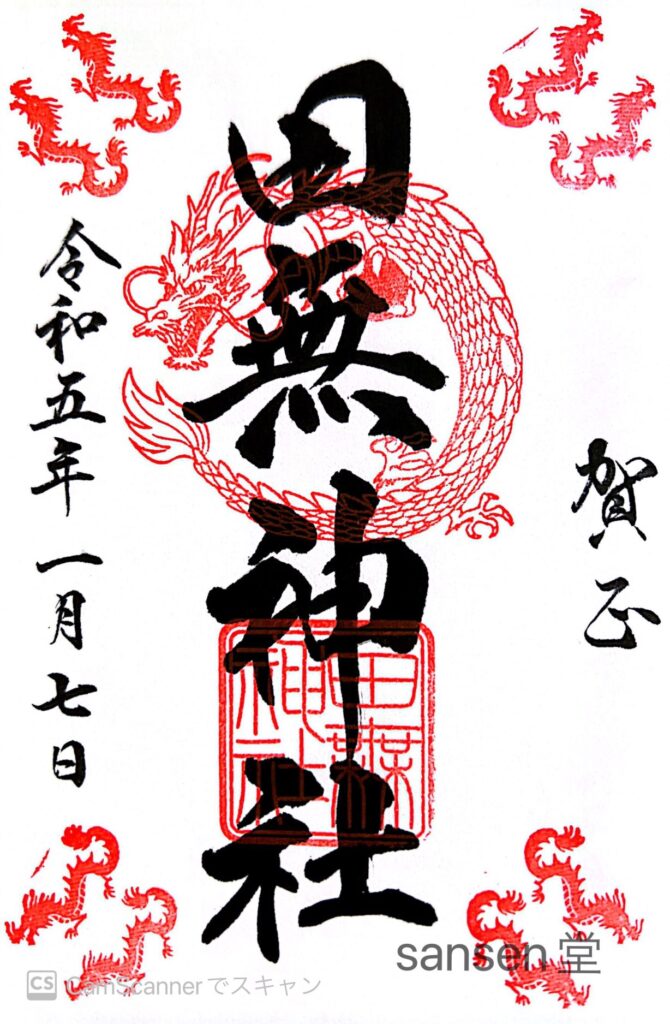 賀正
田無神社
田無神社
令和五年一月七日
sansen堂
CS CamScannerでスキャン